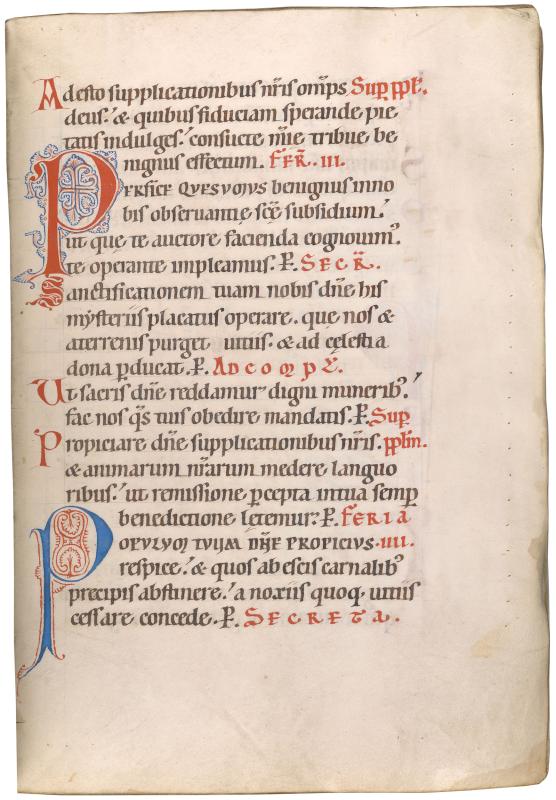 Adesto supplicationibus nr̄is om̄ps Sup̱ pp̱l̄.
deus.' & quibus fiduciam sperande pie
tatis indulges.' consuete mīe tribue be
nignius effectum. FER̄. III.
PERFICE QUESUMUS benignus in no
bis observantie sc̄e subsidium.'
ut que te auctore facienda cognovim᷒.
te operante impleamus. P̱. SECR̄.
Sanctificationem tuam nobis dn̄e his
mysteriis placatus operare. que nos &
a terrenis purget vitiis. & ad celestia
dona p̱ducat. P̱. AD COMPL̄.
Ut sacris dn̄e reddamur digni munerib᷒.'
fac nos q̄s tuis obedire mandatis. P̱. Sup̱
Propiciare dn̄e supplicationibus nr̄is. pp̱lm̄.
& animarum nr̄arum medere languo
ribus.' ut remissione p̱cepta in tua semp̱
benedictione letemur. P̱. FERIA
POPULUM TUUM DN̄E PROPICIUS. IIII.
respice.' & quos ab escis carnalib᷒
precipis abstinere.' a noxiis quoq, vitiis
cessare concede. P̱. SECRETA.